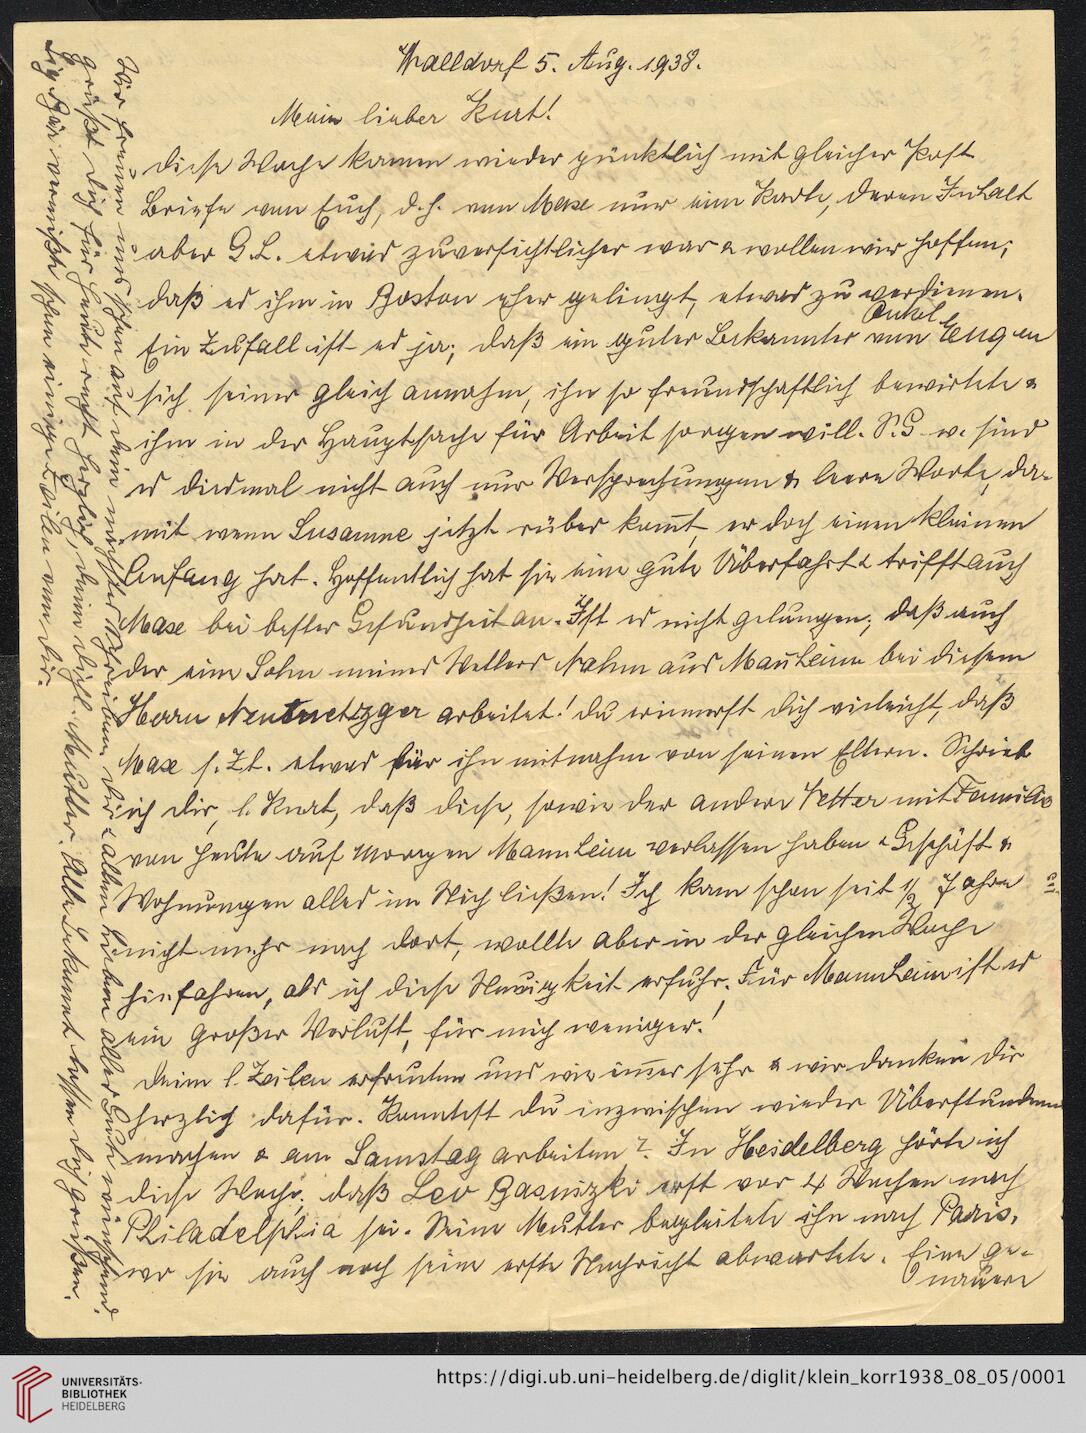 Walldorf 5. Aug. 1938.
Mein lieber Kurt!
Diese Woche kamen wieder pünktlich mit gleicher Post
Briefe von Euch, d.h. von Max nur eine Karte, deren Inhalt
aber G. L. etwas zuversichtlicher war & wollen wir hoffen,
daß es ihm in Boston eher gelingt, etwas zu verdienen.
Ein Zufall ist es ja, daß ein guter Bekannter von Onkel Eugen
sich seiner gleich annahm, ihn so freundschaftlich bewirtete &
ihm in der Hauptsache für Arbeit sorgen will. S. G. w. sind
es diesmal nicht auch nur Versprechungen & leere Worte, da-
mit wenn Susanne jetzt rüber kom̅t, er doch einen kleinen
Anfang hat. Hoffentlich hat sie eine gute Überfahrt & trifft auch
Max bei bester Gesundheit an. Ist es nicht gelungen, daß auch
der eine Sohn meines Vetters Nahm aus Man̅heim bei diesem
Herrn arbeitet! Du erinnerst Dich vieleicht, daß
Max s. Zt. etwas für ihn mitnahm von seinen Eltern. Schrieb
ich Dir, l. Kurt, daß diese, sowie der andere Vetter mit Familie
von heute auf morgen Mannheim verlassen haben & Geschäft &
Wohnungen alles im Stich ließen! Ich kam schon seit 1/2 Jahre
nicht mehr nach dort, wollte aber in der gleichen Woche
hinfahren, als ich diese Neuigkeit erfuhr. Für Mannheim ist es
ein großer Verlust, für mich weniger!
Deine l. Zeilen erfreuten uns wie im̅er sehr & wir danken Dir
herzlich dafür. Konntest Du inzwischen wieder Überstunden
machen & am Samstag arbeiten? In Heidelberg hörte ich
diese Woche, daß Leo Basnizki erst vor 4 Wochen nach
Philadelphia sei. Seine Mutter begleitete ihn nach Paris,
wo sie auch noch seine erste Nachricht abwartete. Eine ge-
nauere
Wir freuen uns schon auf Dein nächstes Schreiben. Dir & allen Lieben alles Gute wünschend,
grüßt Dich für heute recht herzlich, Deine Dichl. Mutter. Alle Bekannt. lassen Dich grüßen.
vermißt schon einige Zeilen von Dir.
UNIVERSITÄTS-
BIBLIOTHEK
HEIDELBERG
https://digi.ub.uni-heidelberg.de/diglit/klein_korr1938_08_05/0001